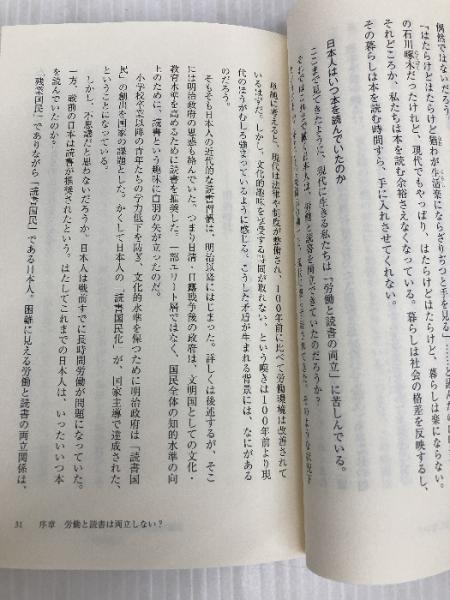 偶然ではないだろう。
「はたらけどはたらけど猶わが生活楽にならざりぢつと手を見る」
の石川啄木だったけれど、現代でもやっぱり、はたらけどはたらけど、暮らしは楽にならない。
それどころか、私たちは本を読む余裕さえなくなっている。暮らしは社会の格差を反映するし、
その暮らしは本を読む時間すら、手に入れさせてくれない。
日本人はいつ本を読んでいたのか
ここまで見てきたように、現代に生きる私たちは「労働と読書の両立」に苦しんでいる。
労働と読書を両立できていたのだろうか?
単純に考えると、現代は法律や制度が整備され、100年前に比べて労働環境は改善されて
いるはずだ。しかし、文化的趣味を享受する時間が取れない、という嘆きは100年前より現
代のほうがむしろ強まっているように感じる。こうした矛盾が生まれる背景には、なにがある
のだろう。
そもそも日本人の近代的な読書習慣は、明治以降にはじまった。詳しくは後述するが、そこ
には明治政府の思惑も絡んでいた。つまり日清・日露戦争後の政府は、文明国としての文化・
教育水準を高めるために読書を推奨した。一部エリート層ではなく、国民全体の知的水準の向
上のために、「読書」という趣味に白羽の矢が立ったのだ。
小学校卒業以降の青年たちの学力低下を防ぎ、文化的水準を保つために明治政府は「読書国
民」の創出を国家の課題とした。かくして日本人の「読書国民化」が、国家主導で達成された、
ということになっている。
しかし、不思議だと思わないだろうか。日本人は戦前すでに長時間労働が問題になっていた。
一方、戦前の日本では読書が推奨されたという。はたしてこれまでの日本人は、いったいいつ本
を読んでいたのか。
「残業国民」でありながら「読書国民」である日本人。困難に見える労働と読書の両立関係は、
31 序章 労働と読書は両立しない?